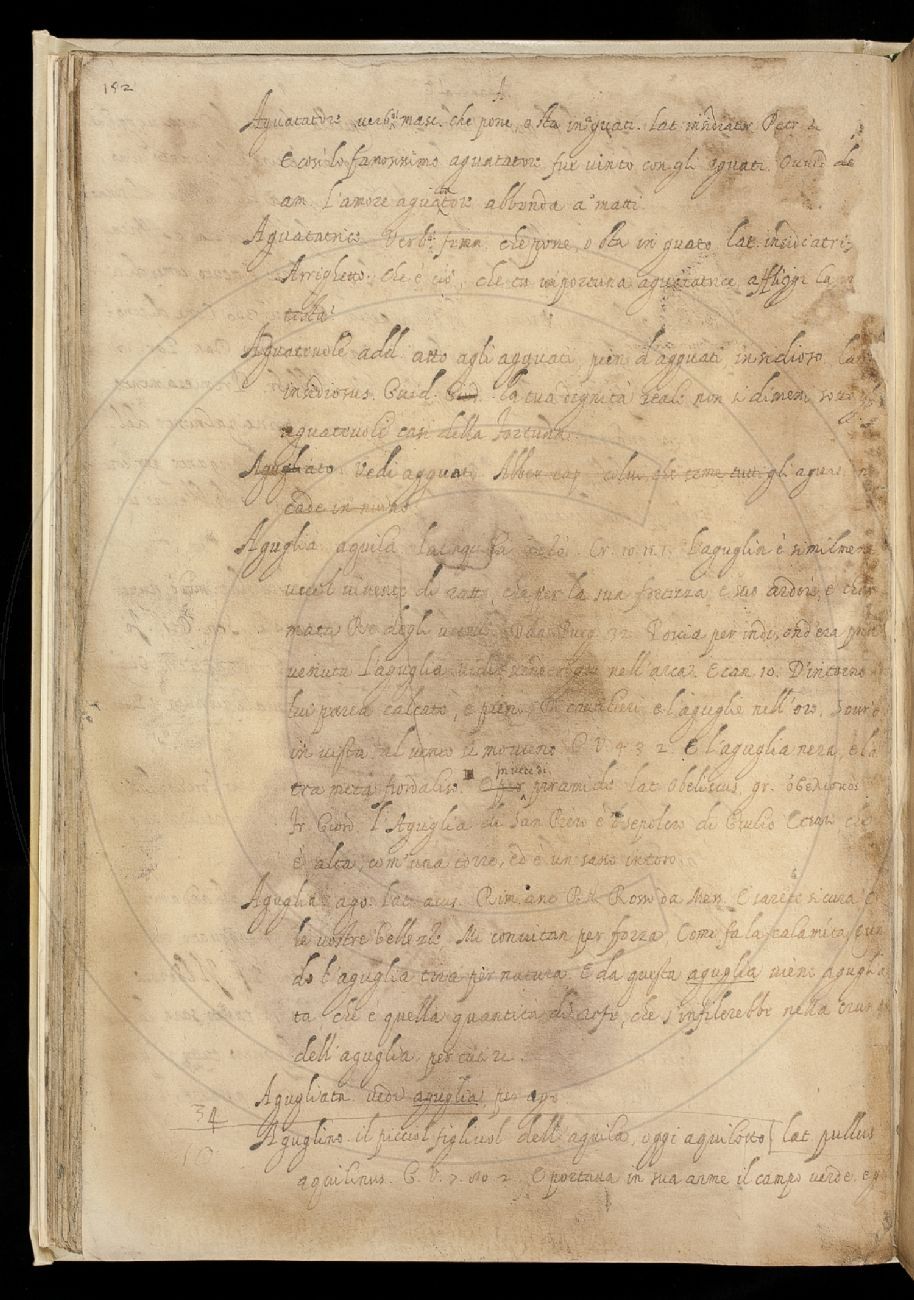 182
A
Aguatatore verb. masc. che pone, o sta in guati. lat. insidiator Petr.
E così lo famosissimo aguatatore fue vinto con gli agguati. Ovid. de
am. l'amore aguatatore abbonda a matti.
Aguatatrice Verb. femm. che pone, o sta in guato lat. insidiatri
Arrighetto. Che è ciò, che tu importuna aguatatrice affliggi la
Aguatevole add. atto agli agguati, pien d'agguati, insidioso. lat
insidiosus. Guid. la tua dignità reale non si dimen
aguatevoli casi della fortuna.
Agugliato Vedi agguato. Alber. cap. colui che teme tutti gli aguati
cade in niuno
Aguglia aquila. lat. aquila Cr. 10. Laguglia è similmen
uccel vivente di ratto, che per la sua fierezza, e suo ardore, è chia
mata Re degli uccelli. Dan. Purg. 32. Poscia per indi, ond'era pri
venuta L'aguglia vidi scender giù nell'arca. E can. 10. D'intorno
lui parea calcato, e pieno Di cavalieri, e l'aguglie nell'oro, Sovr'e
in vista al vento si movieno. G. V. 4. 3. 2. E l'aguglia nera, e la
tra metà fiordalisi. E in vece di piramide lat. Obeliscus, gr. ὀβελίσκος
Fr. Giord. l'Aguglia di San Piero è 'l sepolcro di Giulio Cesare che
è alta, com'una torre, ed è un sasso intero.
Aguglia, ago. lat. acus. Rim. ant. P. N. Rosso da Mess. E sarete sicura
le vostre bellezze, Mi convitan per forza, Come fa la calamita, quan
do l'aguglia tira per natura. E da questa aguglia viene aguglia
ta che è quella quantità di refe, che s'infilerebbe nella cruna
dell'aguglia per cucire.
Agugliata vedi aguglia per ago
34
Aguglino il piccol figliuol dell'aquila, oggi aquilotto [lat. pullus
aquilinus. G. V. 7. 2. E portava in sua arme il campo verde, e